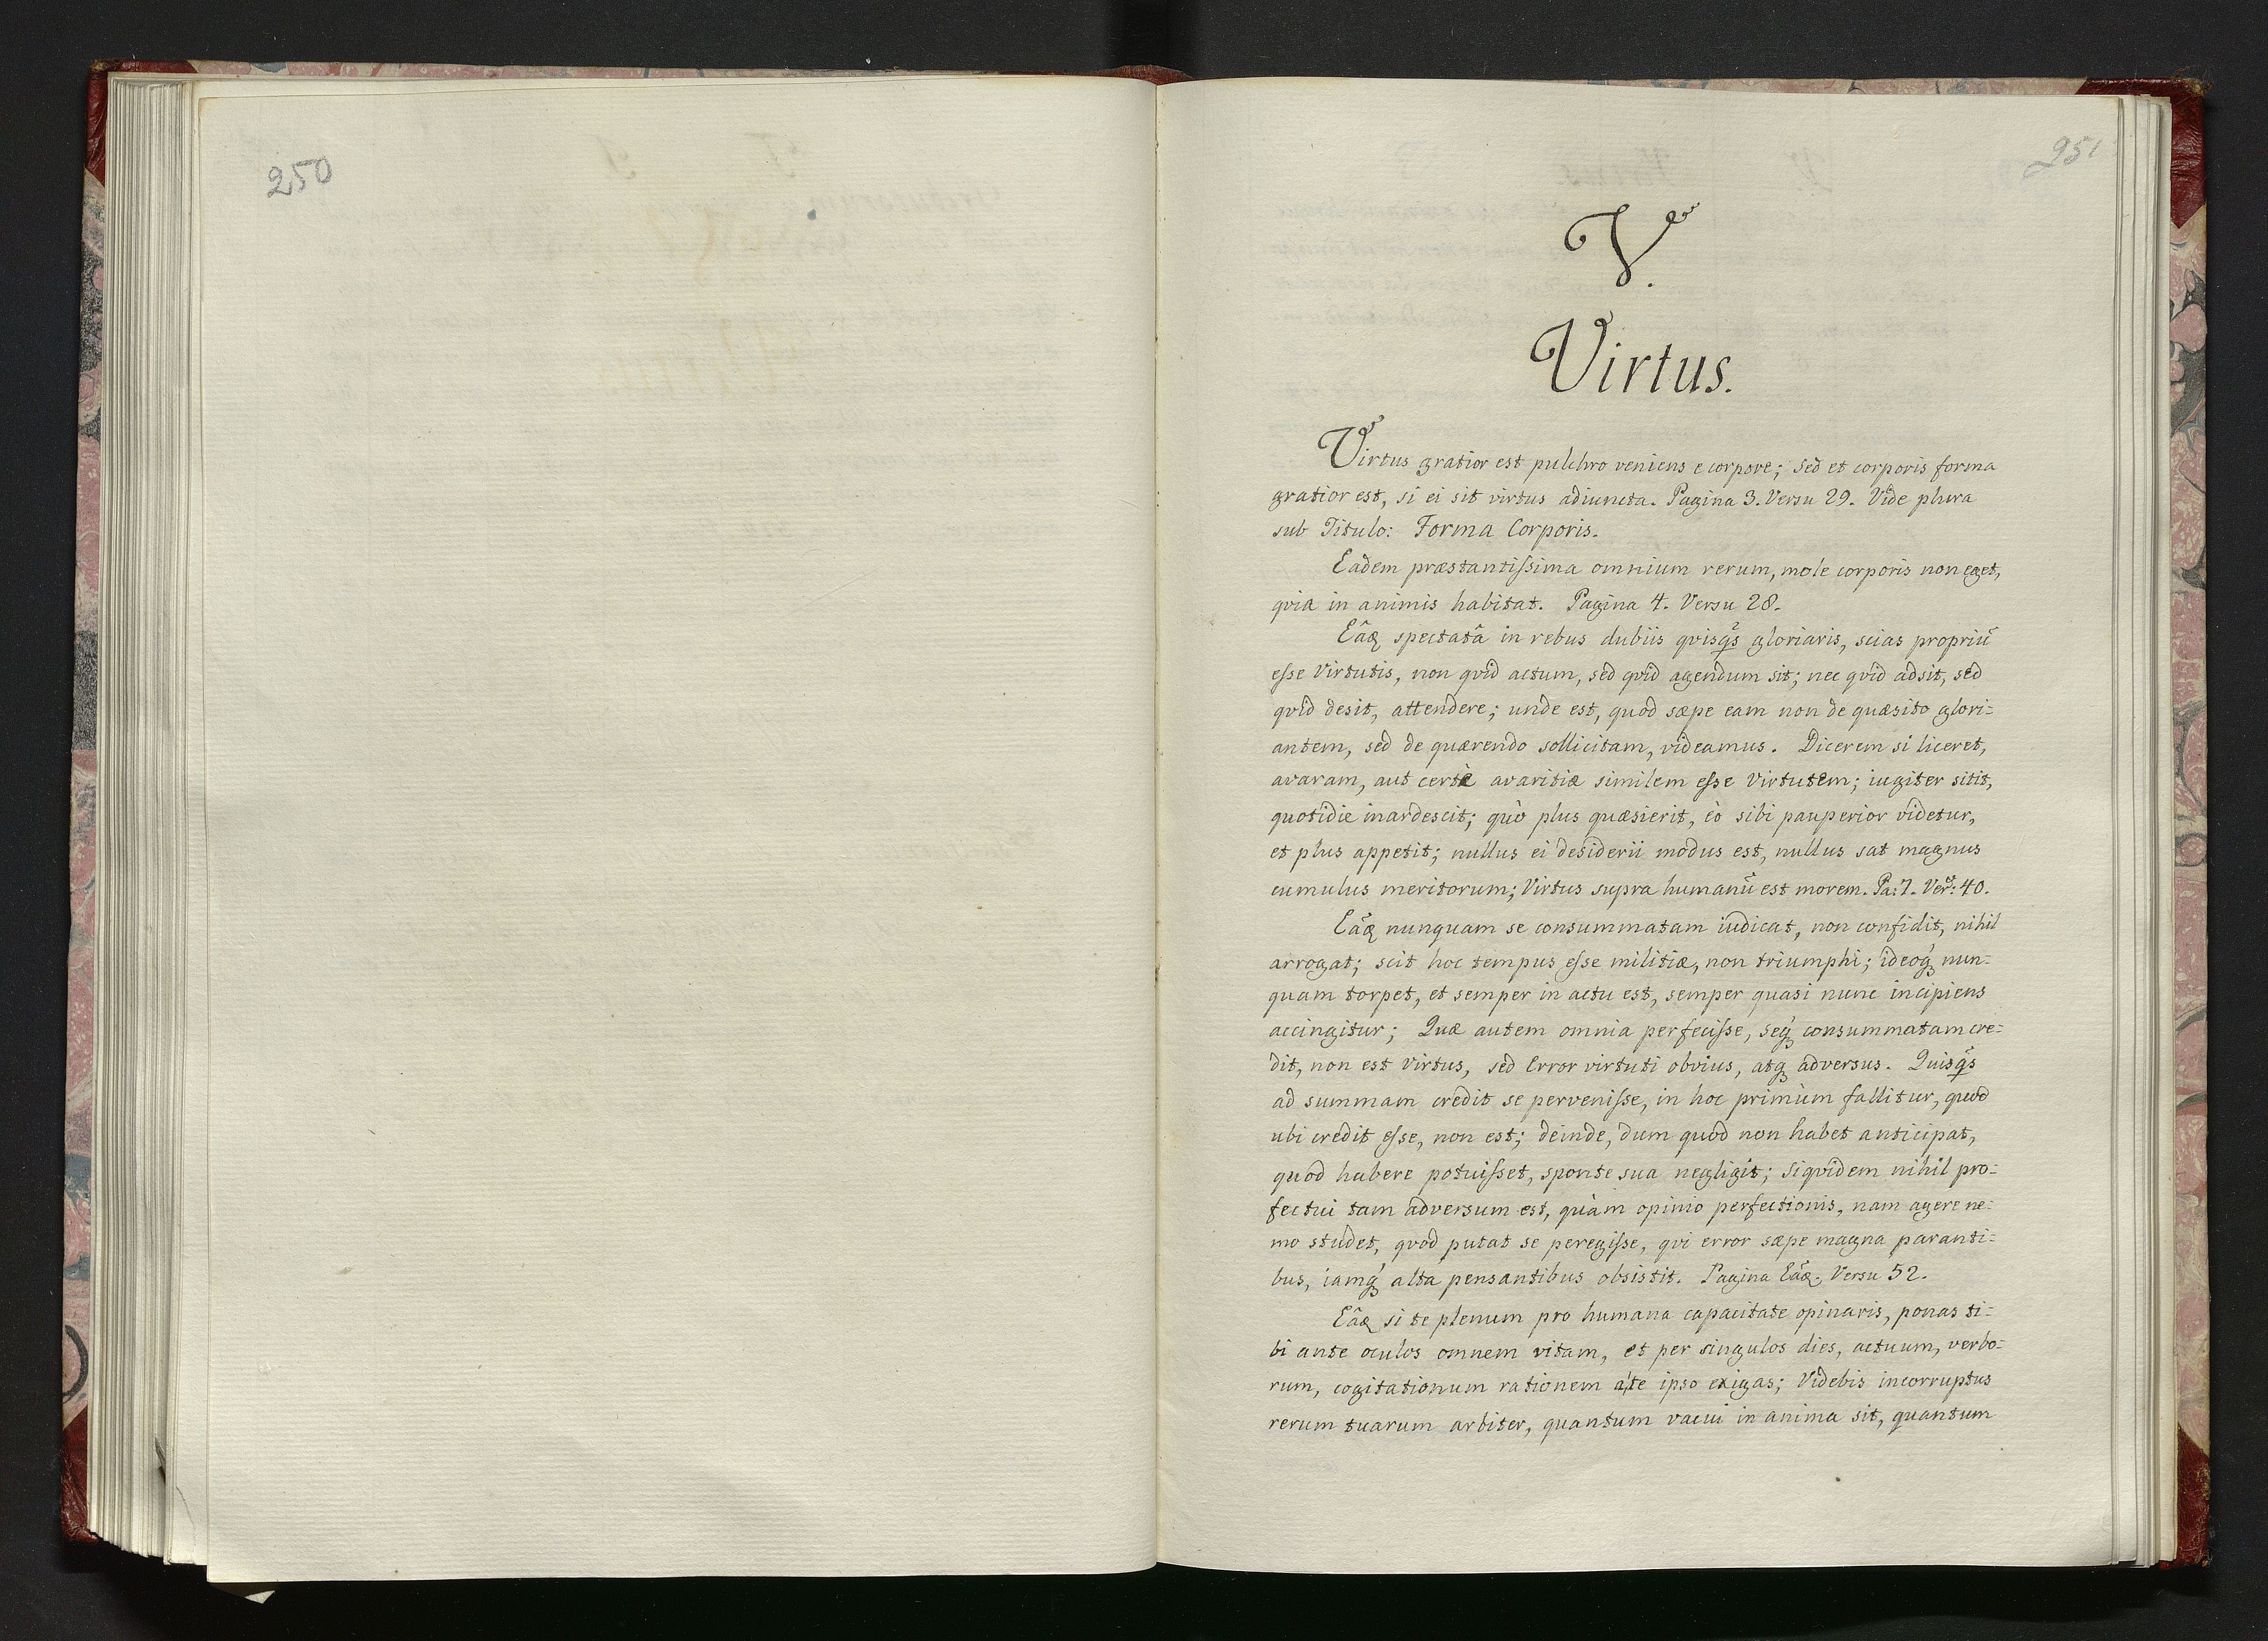 250
251
V.
Virtus.
Virtus gratior est pulchro veniens e corpore; sed et corporis forma
gratior est, si ei sit virtus adiuncta. Pagina 3. Versu 29. Vide plura
sub Titulo: Forma Corporis.
Eadem præstantiſsima omnium rerum, mole corporis non eget,
qvia in animis habitat. Pagina 4. Versu 28.
Eâꝗ spectatâ in rebus dubiis qvisꝗs gloriaris, scias propriū
eſse Virtutis, non qvid actum, sed qvid agendum sit; nec qvid adsit, sed
qvid desit, attendere; unde est, quod sæpe eam non de quæsito glori=
antem, sed de quærendo sollicitam, videamus. Dicerem si liceret,
avaram, aut certè avaritiæ similem eſse Virtutem; iugiter sitit,
quotidie inardescit; quò plus quæsierit, eò sibi pauperior videtur,
et plus appetit; nullus ei desiderii modus est, nullus sat magnus
cumulus meritorum; Virtus supra humanū est morem. Pa: 7. Vers: 40.
Eâꝗ nunquam se consummatam iudicat, non confidit, nihil
arrogat; scit hoc tempus eſse militiæ, non triumphi; ideoꝗ nun=
quam torpet, et semper in actu est, semper quasi nunc incipiens
accingitur; Quæ autem omnia perfeciſse, seꝗ consummatam cre=
dit, non est Virtus, sed Error virtuti obvius, atꝗ adversus. Quisꝗs
ad summam credit se perveniſse, in hoc primùm fallitur, quod
ubi credit eſse, non est; deinde, dum quod non habet anticipat,
quod habere potuiſset, sponte sua negligit; siqvidem nihil pro=
fectui tam adversum est, quàm opinio perfectionis, nam agere ne=
mo studet, qvod putat se peregiſse, qvi error sæpe magna paranti=
bus, iamꝗ alta pensantibus obsistit. Pagina Eâꝗ. Versu 52.
Eâꝗ si te plenum pro humana capacitate opinaris, ponas ti=
bi ante oculos omnem vitam, et per singulos dies, actuum, verbo=
rum, cogitationum rationem a te ipso exigas; Videbis incorruptus
rerum tuarum arbiter, quantum vacui in anima sit, quantum